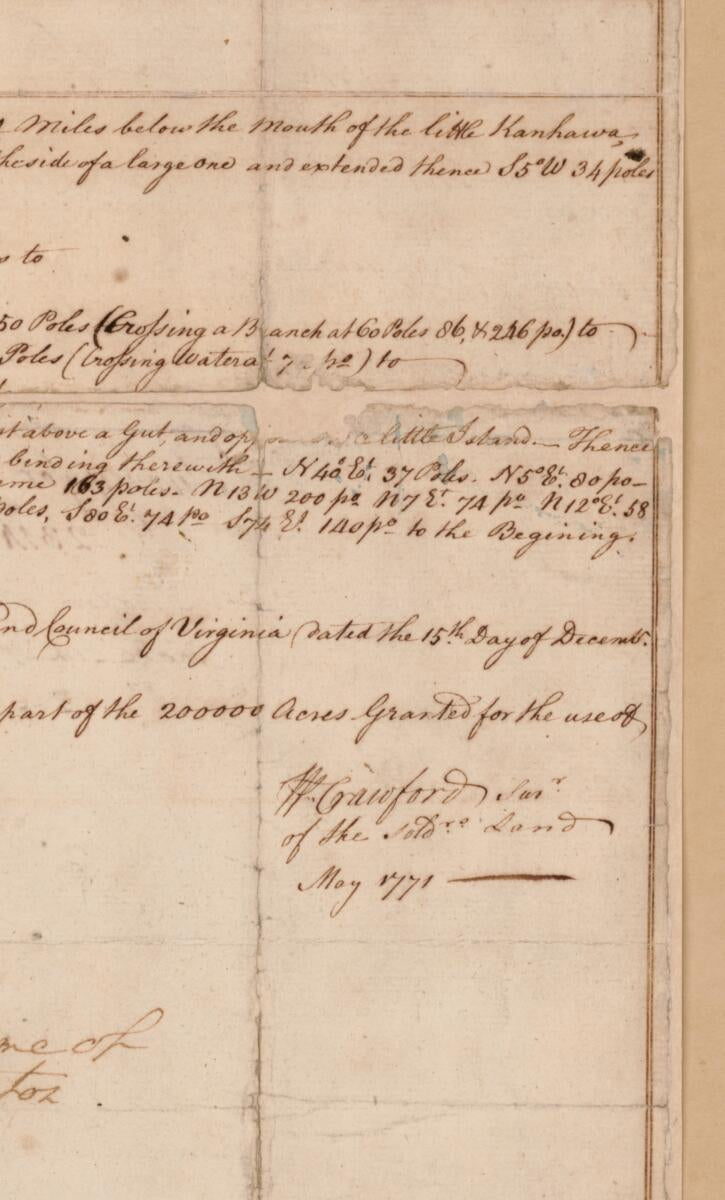 Miles below the Mouth of the little Kanhawa,
the side of a large one and extended thence S5°W 34 poles
to
50 Poles (Crossing a B anch at 60 Poles 86, & 246 po.) to
Poles (Crossing Water at 72 po) to
above a Gut, and op a little Island. — Thence
binding therewith — N40°Et. 37 Poles. N5°Et. 80 po-
163 poles. N13W 200 po N7Et. 74 po N12°Et. 58
poles, S80Et. 74 po S74Et. 140 po to the Begining.
and Council of Virginia dated the 15th. Day of Decemr.
part of the 200000 Acres Granted for the use of
W. Crawford Surr.
of the Soldrs. Land
May 1771 —
me of
ton